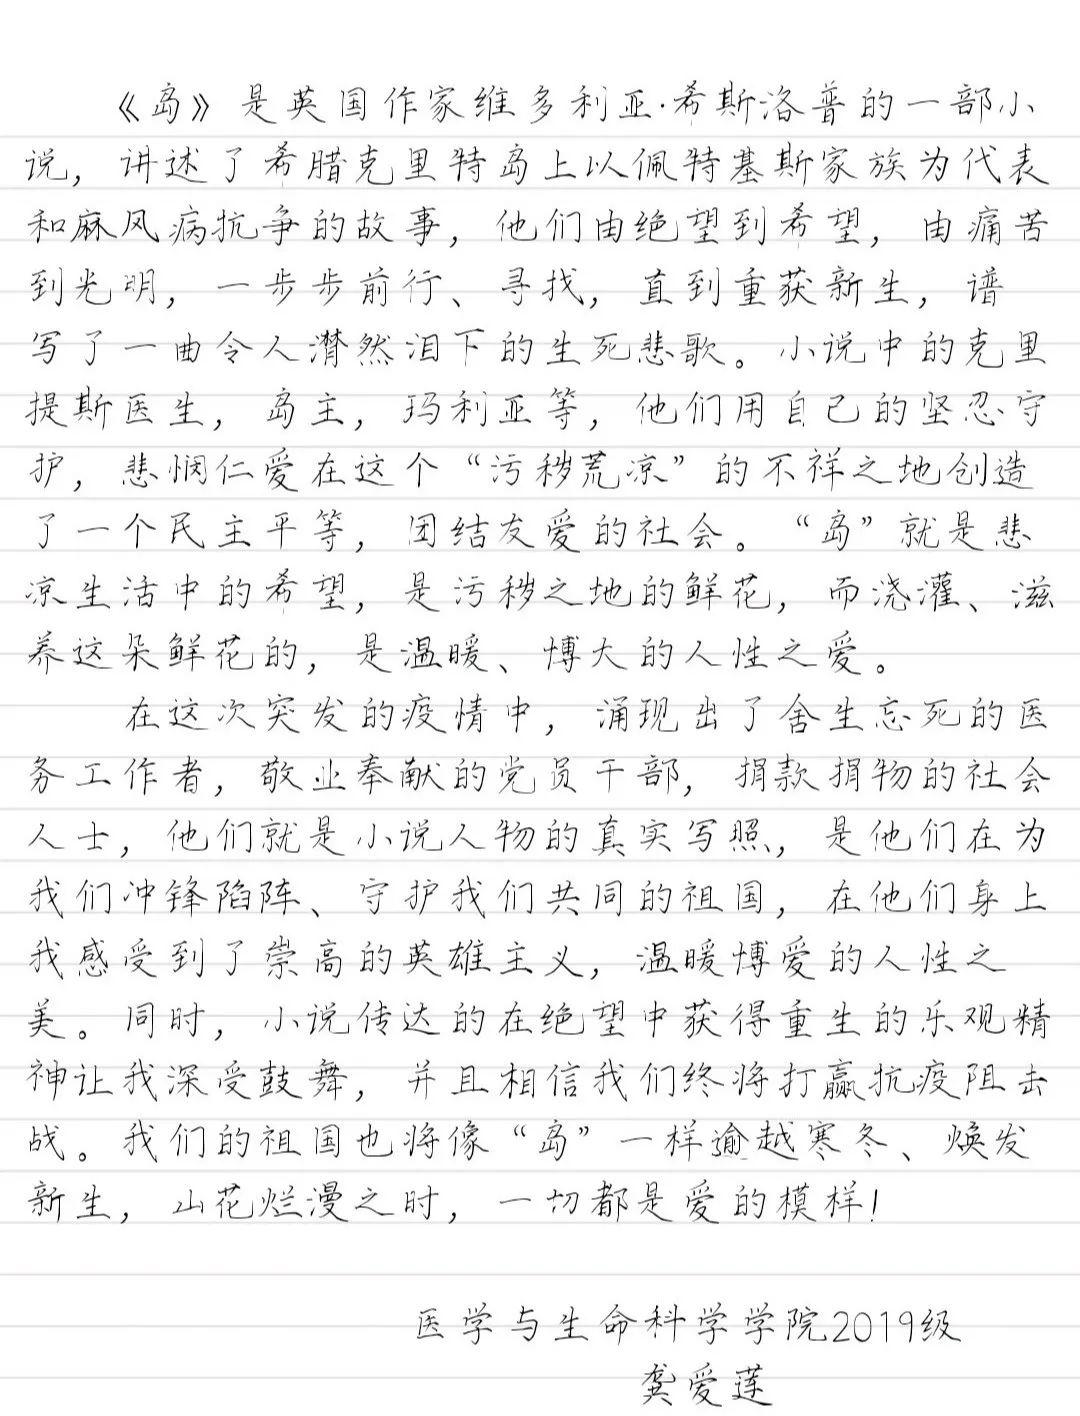 《岛》是英国作家维多利亚·希斯洛普的一部小
说，讲述了希腊克里特岛上以佩特基斯家族为代表
和麻风病抗争的故事，他们由绝望到希望，由痛苦
到光明，一步步前行、寻找，直到重获新生，谱
写了一曲令人潸然泪下的生死悲歌。小说中的克里
提斯医生，岛主，玛利亚等，他们用自己的坚忍守
护，悲悯仁爱在这个“污秽荒凉”的不祥之地创造
了一个民主平等，团结友爱的社会。“岛”就是悲
凉生活中的希望，是污秽之地的鲜花，而浇灌、滋
养这朵鲜花的，是温暖、博大的人性之爱。
在这次突发的疫情中，涌现出了舍生忘死的医
务工作者，敬业奉献的党员干部，捐款捐物的社会
人士，他们就是小说人物的真实写照，是他们在为
我们冲锋陷阵、守护我们共同的祖国，在他们身上
我感受到了崇高的英雄主义，温暖博爱的人性之
美。同时，小说传达的在绝望中获得重生的乐观精
神让我深受鼓舞，并且相信我们终将打赢抗疫阻击
战。我们的祖国也将像“岛”一样逾越寒冬、焕发
新生，山花烂漫之时，一切都是爱的模样！
医学与生命科学学院2019级
龚爱莲